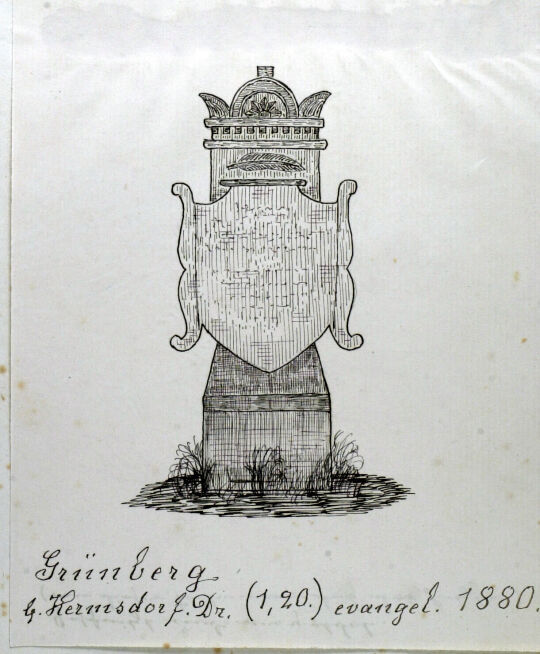 Grünberg
b. Hermsdorf. Dr. (1,20.) evangel. 1880.